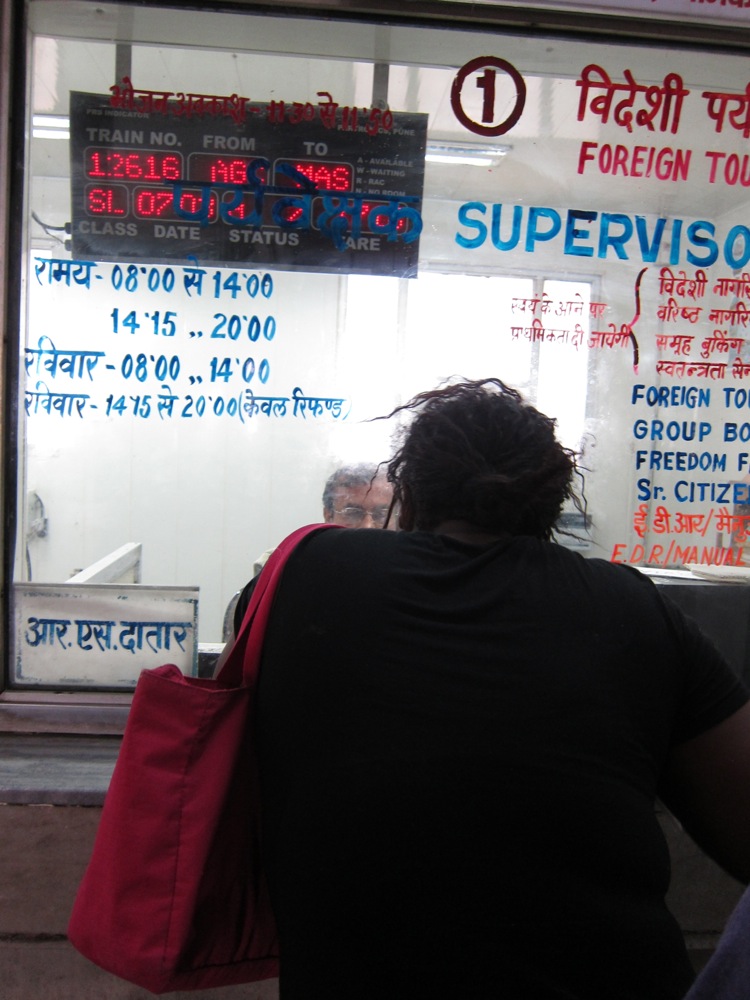 भोजन अवकाश - 11.30 से 11.50
PRS INDICATOR
TRAIN NO. FROM TO
12616
MAS
A - AVAILABLE
W - WAITING
R - RAC
N - NO ROOM
SL
CLASS DATE STATUS FARE
पर्यवेक्षक SUPERVISO
1 विदेशी पर्य
FOREIGN TOU
समय - 08'00 से 14'00
14'15 ,, 20'00
रविवार - 08'00 ,, 14'00
रविवार - 14'15 से 20'00 (केवल रिफण्ड)
स्वयं के आने पर
प्राथमिकता दी जावेगी
विदेशी नागरि
वरिष्ठ नागरि
समूह बुकिंग
स्वतन्त्रता सेन
FOREIGN TO
GROUP BO
FREEDOM F
Sr. CITIZE
ई.डी.आर/मैनु
E.D.R./MANUAL
आर.एस.दातार